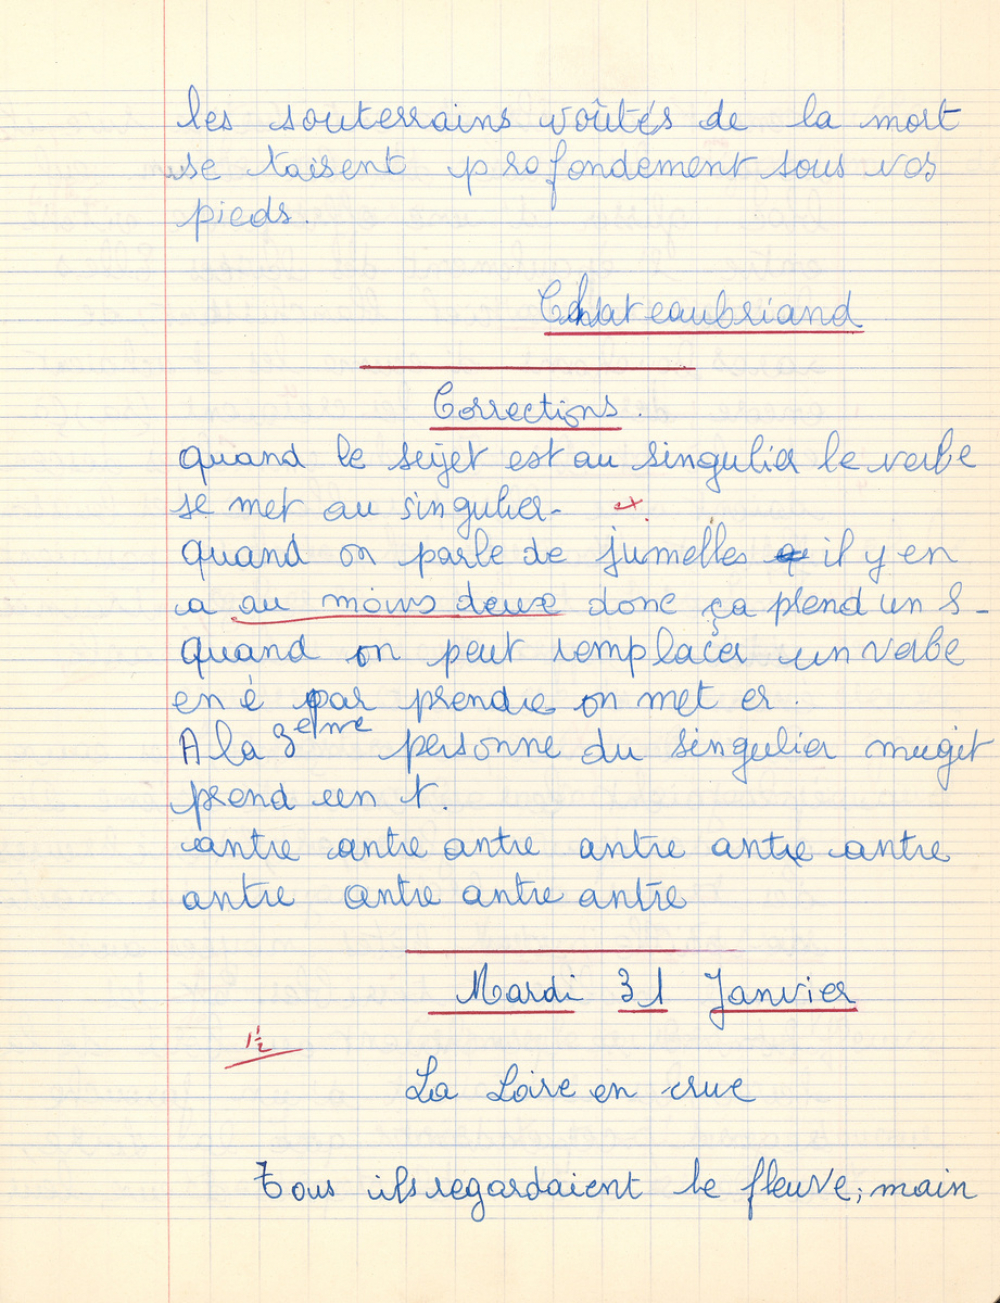 les souterrains voûtés de la mort
se taisent profondement sous vos
pieds.
Chateaubriand
Corrections.
quand le sujet est au singulier le verbe
se met au singulier-
quand on parle de jumelles il y en
a au moins deux donc ça prend un S-
quand on peut remplacer un verbe
en é par prendre on met er.
A la 3eme personne du singulier mugit
prend un t.
antre antre antre antre antre antre
antre antre antre antre
Mardi 31 Janvier
1½
La Loire en crue
Tous ils regardaient le fleuve; main